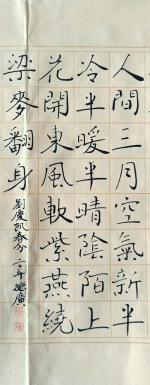 人間三月空氣新半
冷半暖半晴陰陌上
花開東風軟紫燕繞
梁麥翻身
劉慶凱春分